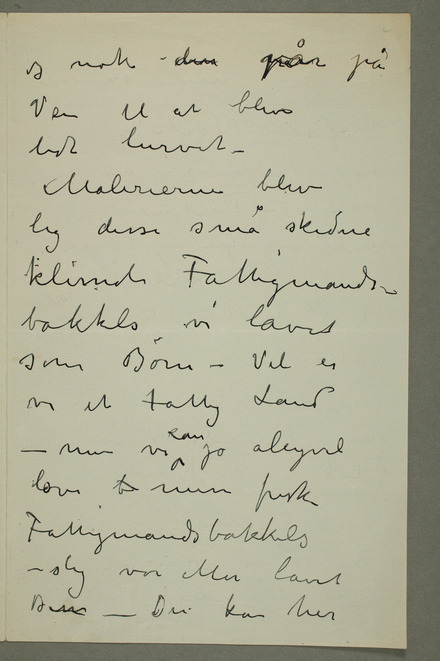 og nok den går på
Vei til at blive
lidt lurvet –
Malerierne blev
lig disse små skidne
klissede Fattigmands-
bakkels vi lavet
som Børn – Vel er
vi et fattig Land
– men vi kan jo alligevel
lave b mere frisk
Fattigmandsbakkels
– slig vor Mor lavet
Dem – De kan her